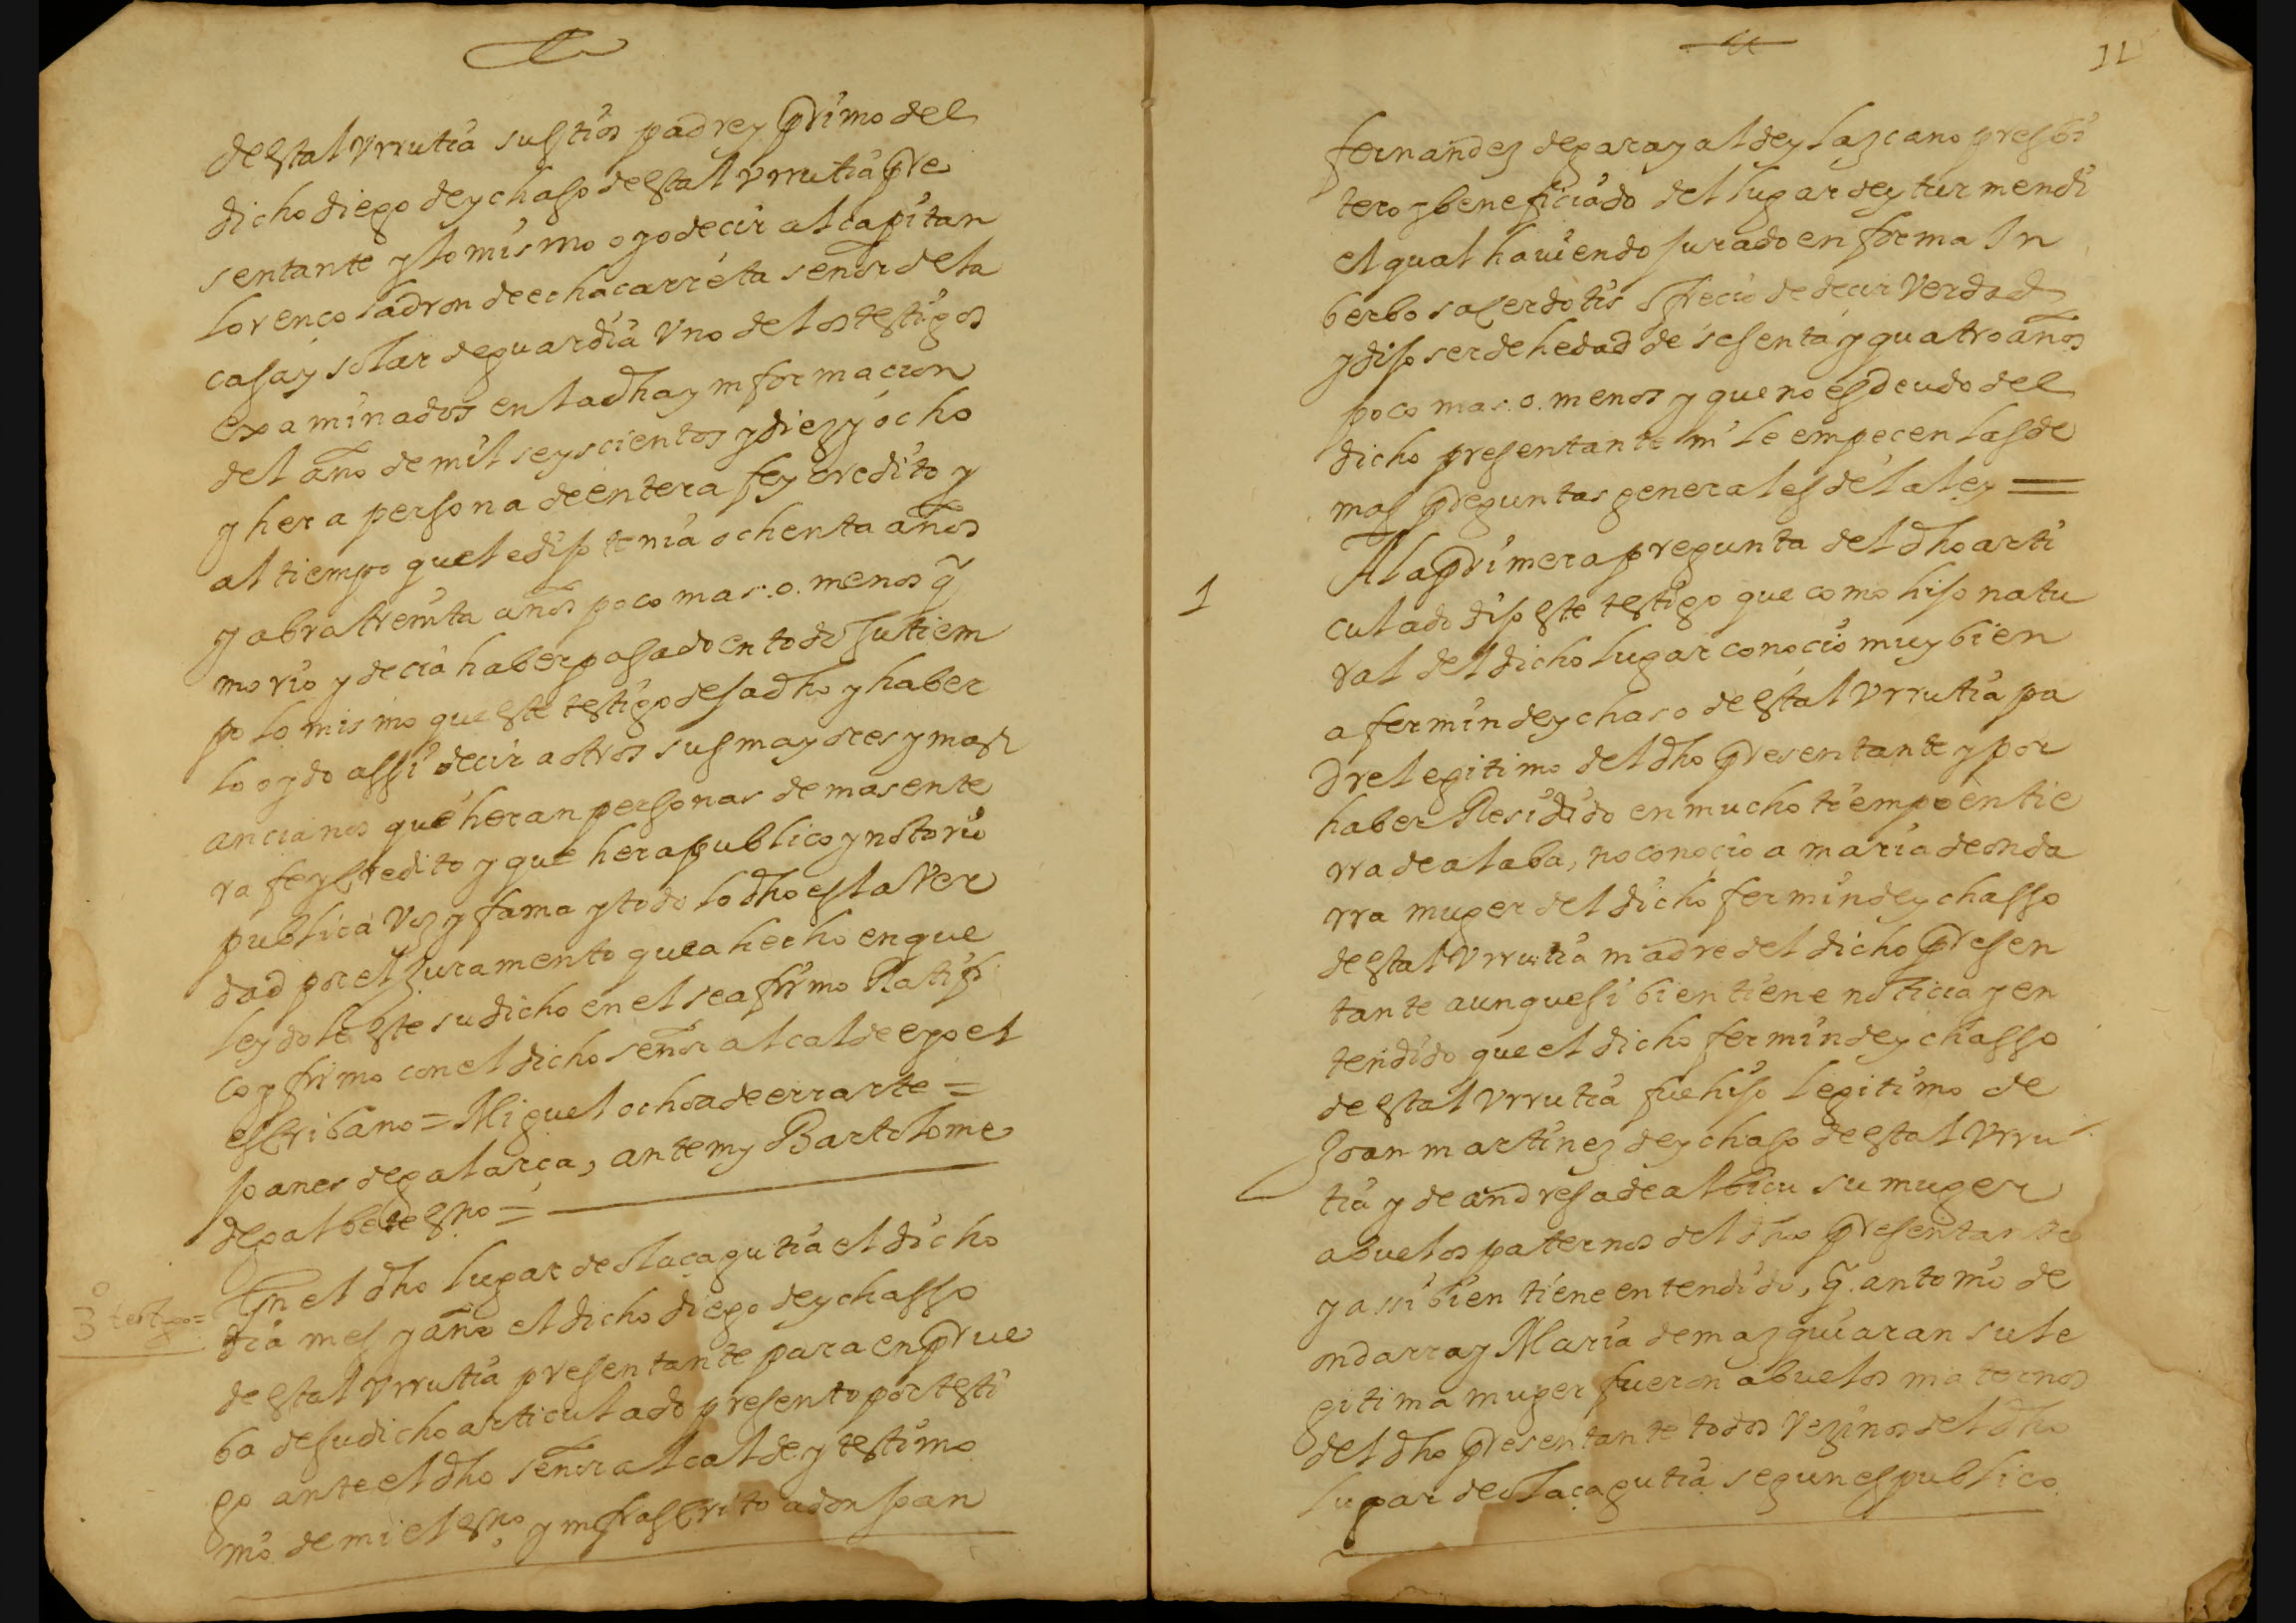 de estal Vrrutia sus tios padre y primo del
dicho diego de ychaso de estal Vrrutia pre
sentante y lo mismo oyo decir al capitan
lorenço ladron de echacarreta señor de la
casa y solar de guardia Vno de los testigos
examinados en la dha ynformacion
del año de mil seyscientos y diez y ocho
y hera persona de entera fe y credito y
al tiempo que le dijo tenia ochenta años
y abra treinta años poco mas .o. menos q̃
morio y decia haber pasado en todo su tiem
po lo mismo que este testigo desa dho y haber
lo oydo assi decir a otros sus mayores y mas
ancianos que heran personas de mas ente
ra fe y credito y que hera publico y notorio
publica Voz y fama y todo lo dho es la Ver
dad por el juramento que a hecho en que
leydole este su dicho en el se afirmo Ratifi
co y firmo con el dicho señor alcalde e yo el
escribano = Miguel ochoa de errarte =
joanes de galarça, ante my Bartolome
de galbete esno =
3º testigo=
En el dho lugar de olaçagutia el dicho
dia mes y año el dicho diego de ychasso
de estal Vrrutia presentante para en prue
ba de su dicho articulado presento por testi
go ante el dho señor alcalde y testimo
nio de mi el esno ynfrascrito a don juan
11
fernandez de garayalde y lazcano presbi
tero y beneficiado del lugar de yturmendi
el qual hauiendo jurado en forma In
berbo sacerdotis ofrecio de decir Verdad
y dijo ser de hedad de sesenta y quatro años
poco mas .o. menos y que no es deudo del
dicho presentante ni le empecen las de
mas preguntas generales de la ley =
1
A la primera pregunta del dho arti
culado dijo este testigo que como hijo natu
ral del dicho lugar conocio muy bien
a fermin de ychaso de estal Vrrutia pa
dre legitimo del dho presentante y por
haber Residido en mucho tiempo en tie
rra de alaba, no conocio a maria de onda
rra muger del dicho fermin de ychasso
de estal Vrrutia madre del dicho presen
tante aunque si bien tiene noticia y en
tendido que el dicho fermin de ychasso
de estal Vrrutia fue hijo legitimo de
Joan martinez de ychaso de estal Vrru
tia y de andresa de albicu su muger
abuelos paternos del dho presentante
y assi bien tiene entendido, q̃. antonio de
ondarra y Maria de mazquiaran su le
gitima muger fueron abuelos maternos
del dho presentante todos Vezinos del dho
lugar de olaçagutia segun es publico